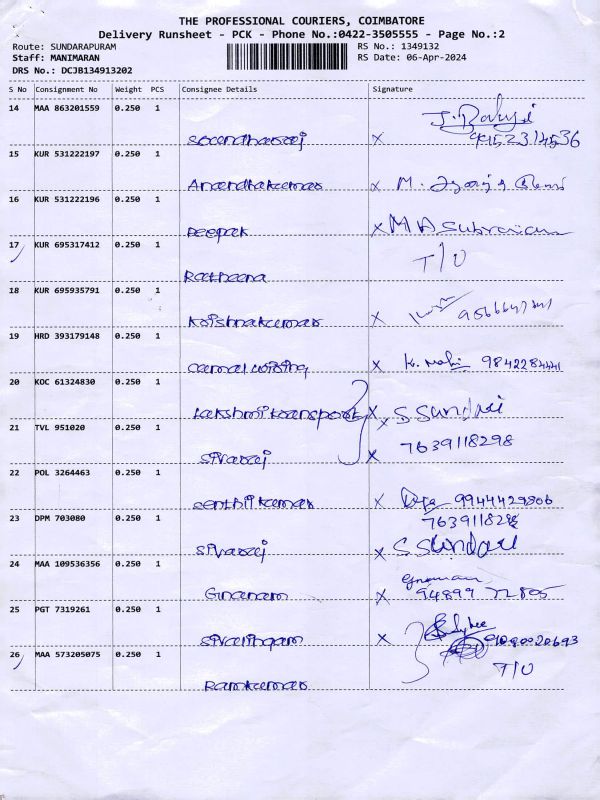 THE PROFESSIONAL COURIERS, COIMBATORE
Delivery Runsheet - PCK - Phone No.:0422-3505555 - Page No.:2
Route: SUNDARAPURAM RS No.: 1349132
Staff: MANIMARAN RS Date: 06-Apr-2024
DRS No.: DCJB134913202
S No Consignment No Weight PCS Consignee Details Signature
14 MAA 863201559 0.250 1
Soundharraj X
15 KUR 531222197 0.250 1
Anandhakumar X M.
16 KUR 531222196 0.250 1
Deepak X M A Subramani
17 KUR 695317412 0.250 1 T/O
Ratheena
18 KUR 695935791 0.250 1
Krishnakumar X
19 HRD 393179148 0.250 1
camal wising X K. Mahi 9842284441
20 KOC 61324830 0.250 1
Lakshmi transport X S Sundari
21 TVL 951020 0.250 1 X 7639118298
Sivaraj X
22 POL 3264463 0.250 1
Senthil kumar X 9944429806
23 DPM 703080 0.250 1 7639118298
Sivaraj X S Sundari
24 MAA 109536356 0.250 1
Gnanam X 94899 72805
25 PGT 7319261 0.250 1
Sivalingam X
26 MAA 573205075 0.250 1 T/O
Ramkumar